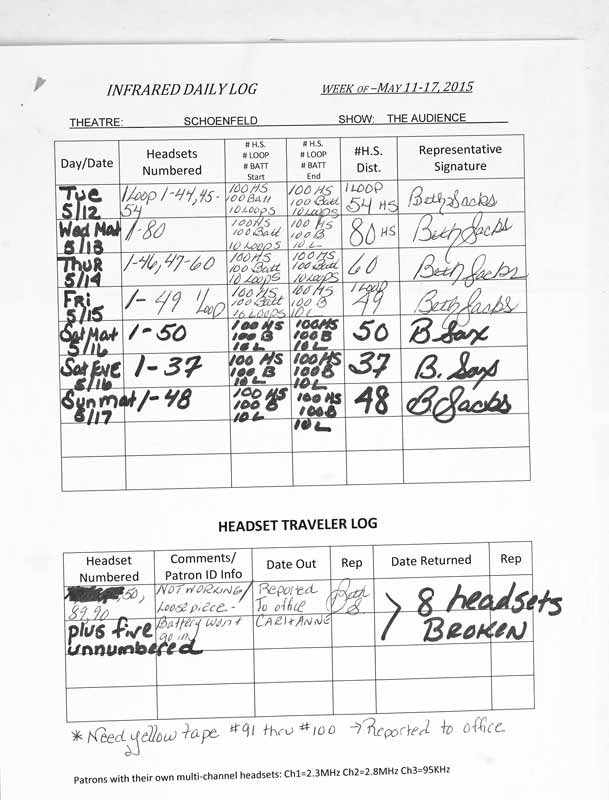 INFRARED DAILY LOG WEEK OF –MAY 11-17, 2015
THEATRE: SCHOENFELD SHOW: THE AUDIENCE
Day/Date Headsets Numbered # H.S. # LOOP # BATT Start # H.S. # LOOP # BATT End #H.S. Dist. Representative Signature
Tue 5/12 1 Loop 1-44, 45-54 100 HS 100 Batt 10 Loops 100 HS 100 Batt 10 Loops 1 LOOP 54 HS Beth Sacks
Wed Mat 5/13 1-80 100 HS 100 Batt 10 Loops 100 HS 100 B 10 L 80 HS Beth Sacks
Thur 5/14 1-46, 47-60 100 HS 100 Batt 10 Loops 100 HS 100 Batt 10 Loops 60 Beth Sacks
Fri 5/15 1-49 1 Loop 100 HS 100 Batt 10 Loops 100 HS 100 B 10 L 1 Loop 49 Beth Sacks
Sat Mat 5/16 1-50 100 HS 100 B 10 L 100 HS 100 B 10 L 50 B. Sax
Sat Eve 5/16 1-37 100 HS 100 B 10 L 100 HS 100 B 10 L 37 B. Sax
Sun mat 5/17 1-48 100 HS 100 B 10 L 100 HS 100 B 10 L 48 B. Sacks
HEADSET TRAVELER LOG
Headset Numbered Comments/ Patron ID Info Date Out Rep Date Returned Rep
50, 89, 90 NOT WORKING/ Loose piece- Reported To office Beth S. 8 headsets BROKEN
plus five unnumbered Battery won't go in CARI+ANNE
* Need yellow tape #91 thru #100 → Reported to office
Patrons with their own multi-channel headsets: Ch1=2.3MHz Ch2=2.8MHz Ch3=95KHz